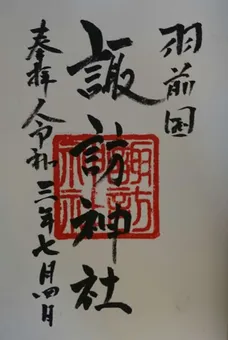 羽前国
諏訪神社
奉拝 令和三年七月四日
諏訪
神社